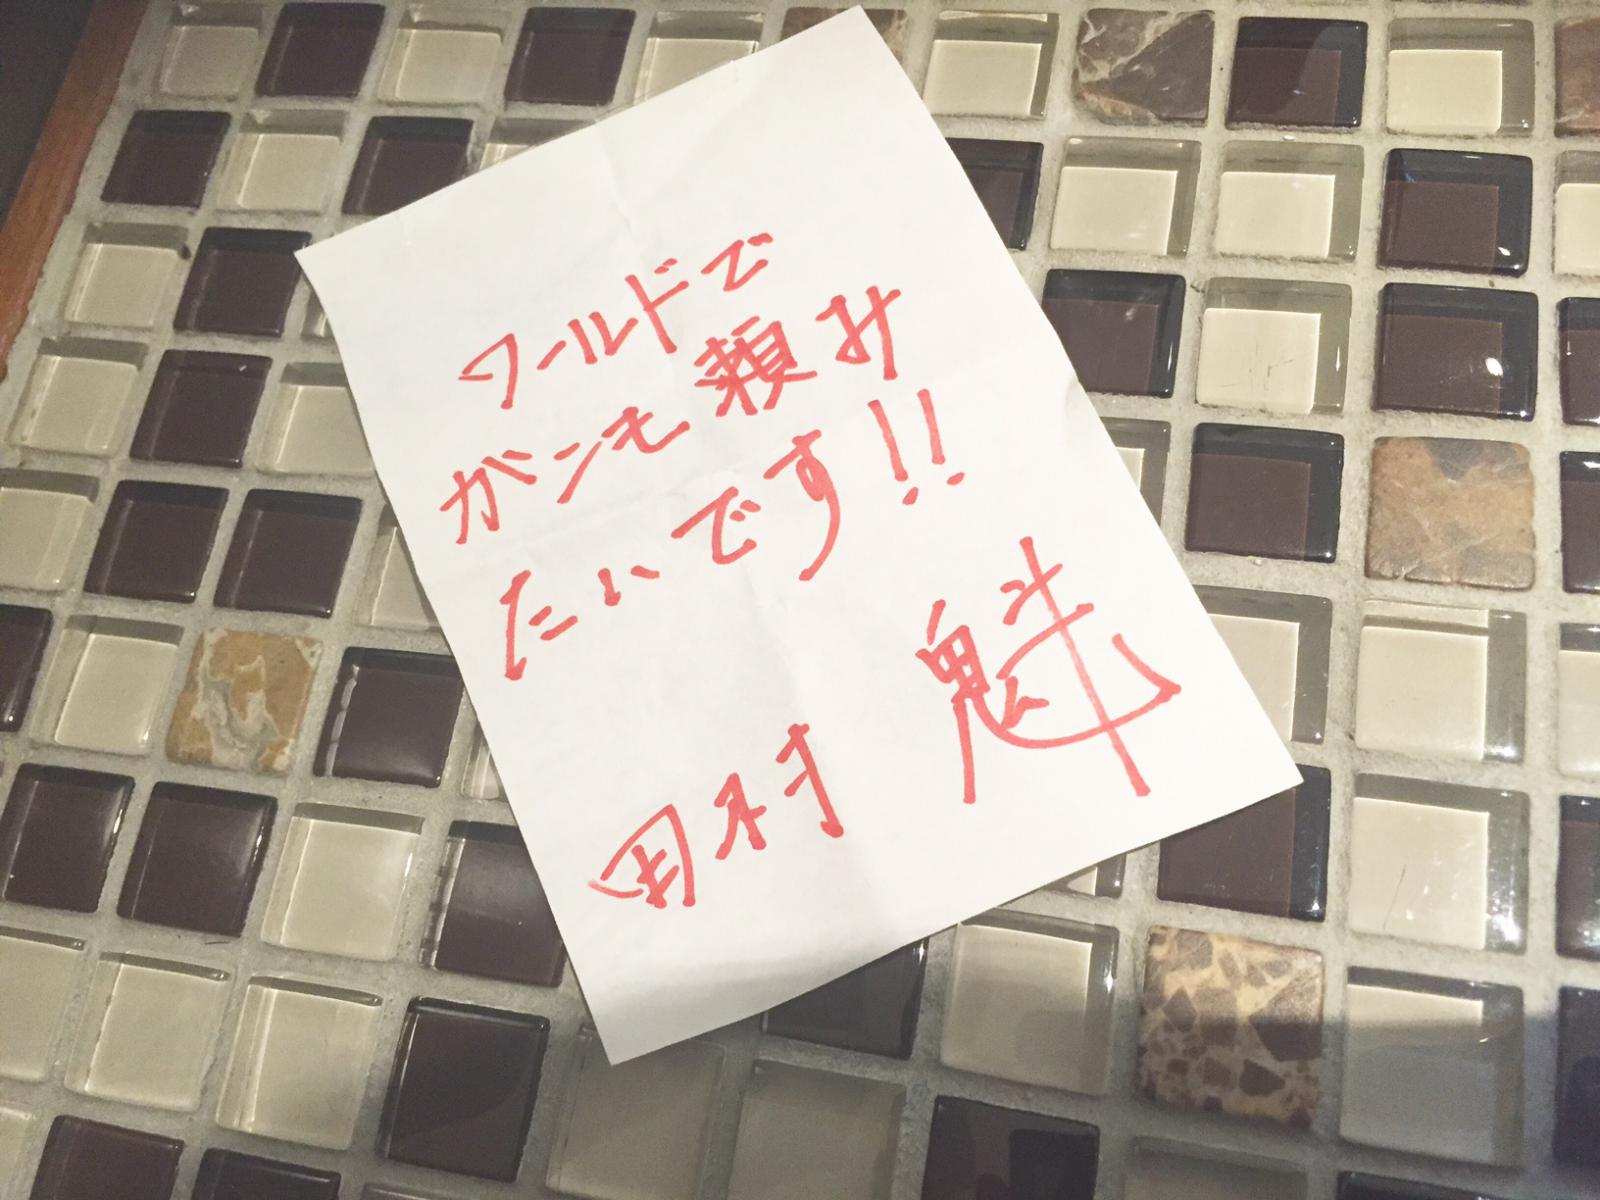 ワールドで
かンも頼み
たいです!!
田村 魁